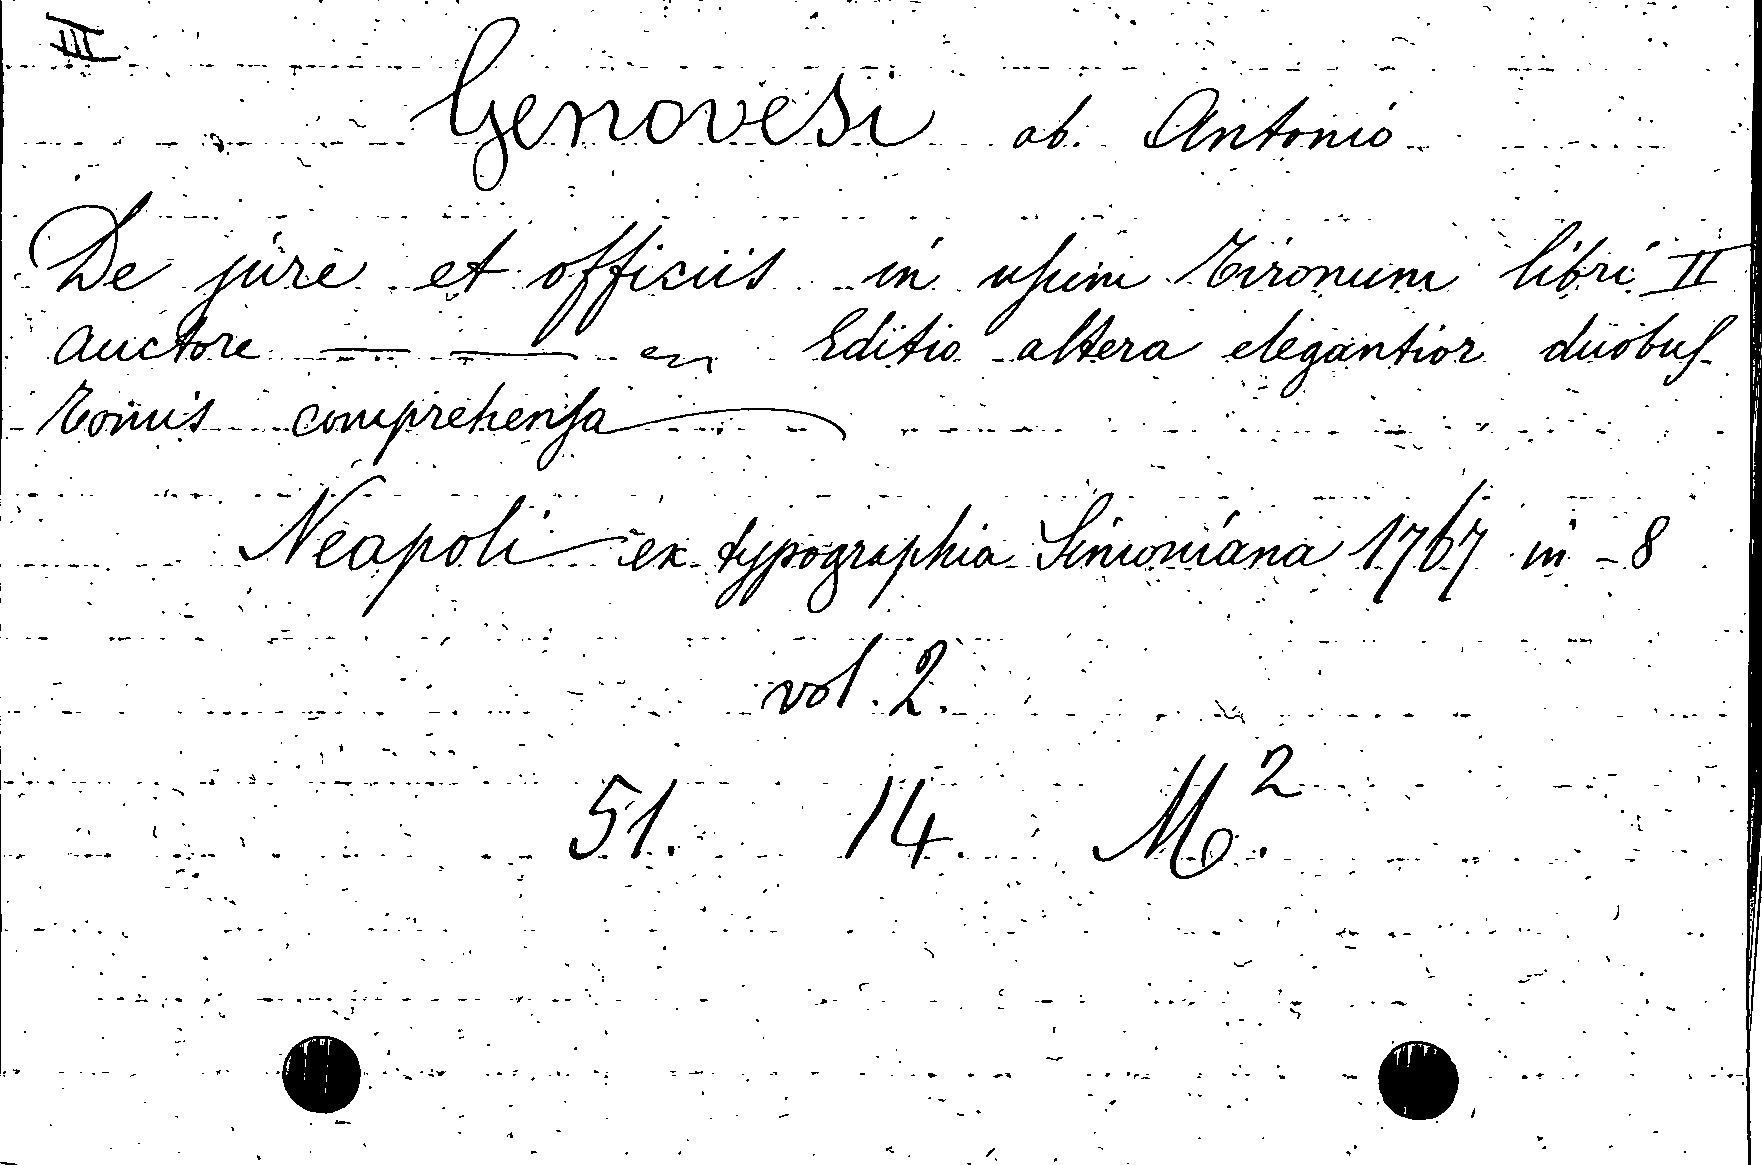 III
Genovesi ab. Antonio
De jure et officiis in usum Tironum libri II
auctore — — en Editio altera elegantior duobus
Tomis comprehensa
Neapoli ex typographia Simoniana 1767 in-8
vol. 2.
51. 14. M.²